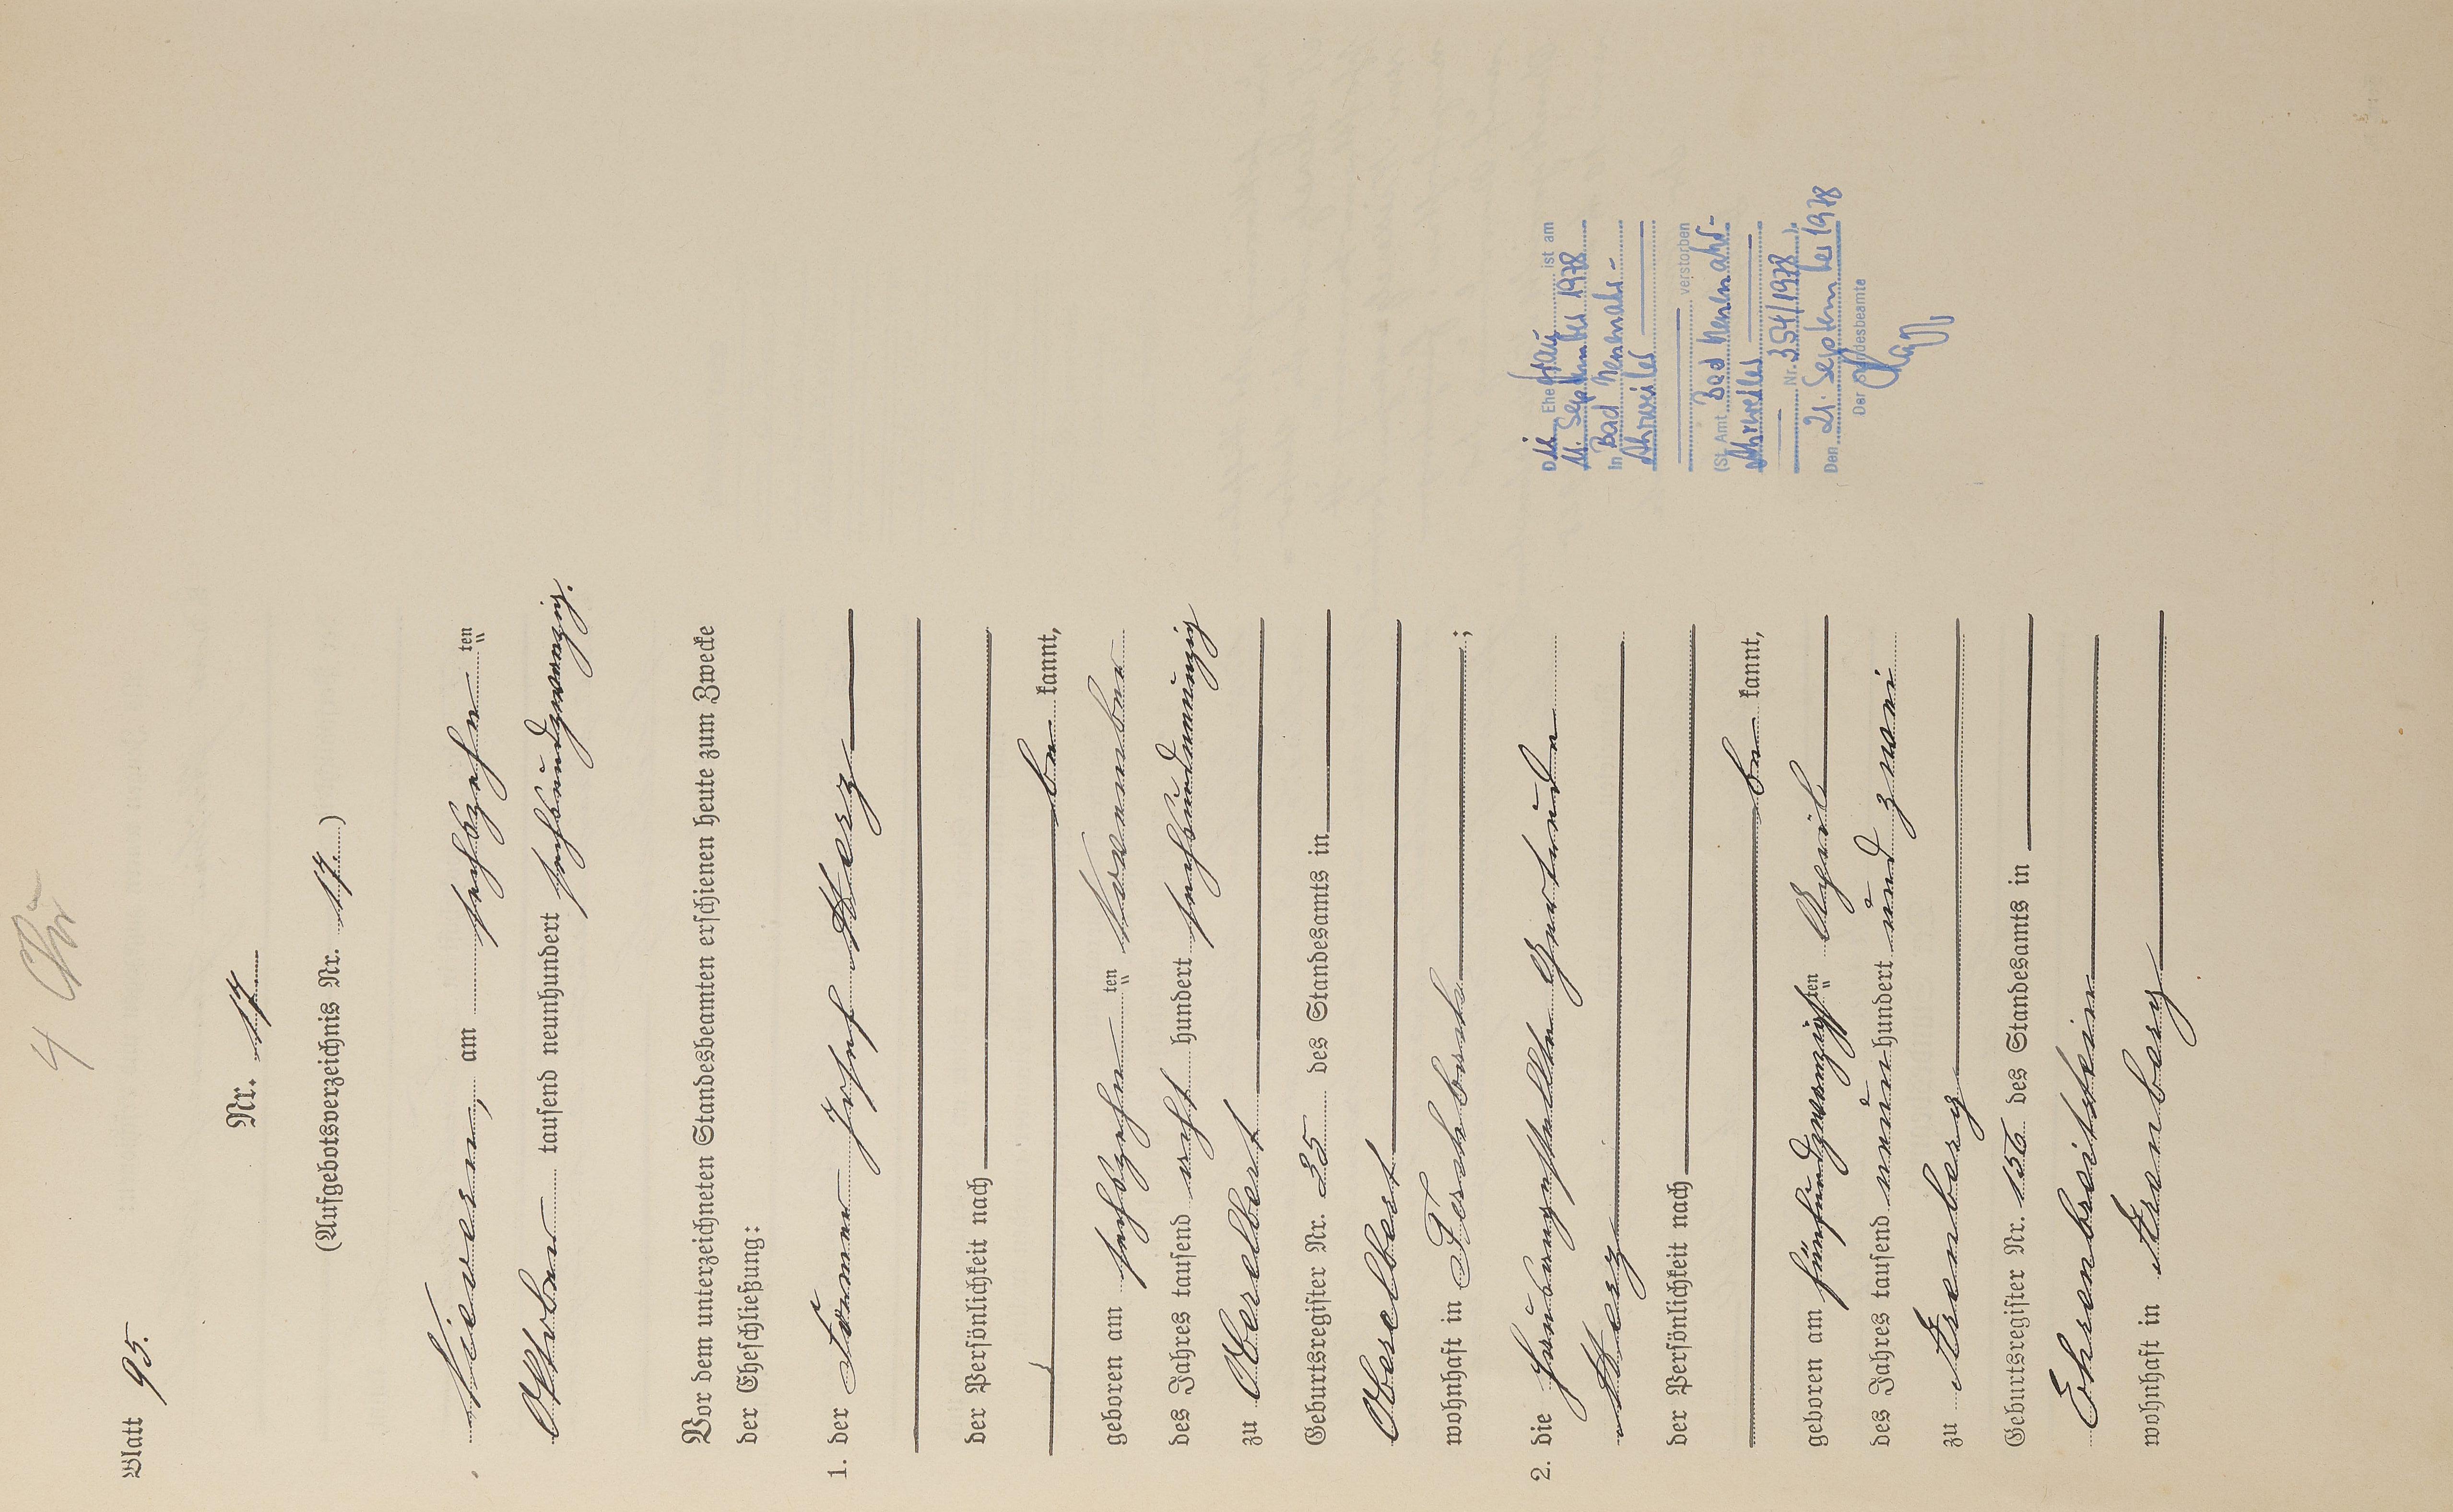 Blatt 95.
Nr. 17
(Aufgebotsverzeichnis Nr. 17.)
Nievern, am sechszehn ten
Oktober tausend neunhundert sechsundzwanzig.
Vor dem unterzeichneten Standesbeamten erschienen heute zum Zwecke
der Eheschließung:
1. der Former Josef Herz
der Persönlichkeit nach
be kannt,
geboren am sechszehn ten November
des Jahres tausend acht hundert sechsundneunzig
zu Oberelbert
Geburtsregister Nr. 35 des Standesamts in
Oberelbert
wohnhaft in
2. die Hausangestellte Gertrude
der Persönlichkeit nach
be kannt,
geboren am fünfundzwanzigsten April
des Jahres tausend neun hundert und zwei
zu Arenberg
Geburtsregister Nr. 156 des Standesamts in
Ehrenbreitstein
wohnhaft in Arenberg
Die Ehefrau ist am
11. September 1978
In Bad Neuenahr-
Ahrweiler
verstorben
(St. Amt Bad Neuenahr-
Ahrweiler
Nr. 354/1978).
Den 21. September 1978
Der Standesbeamte